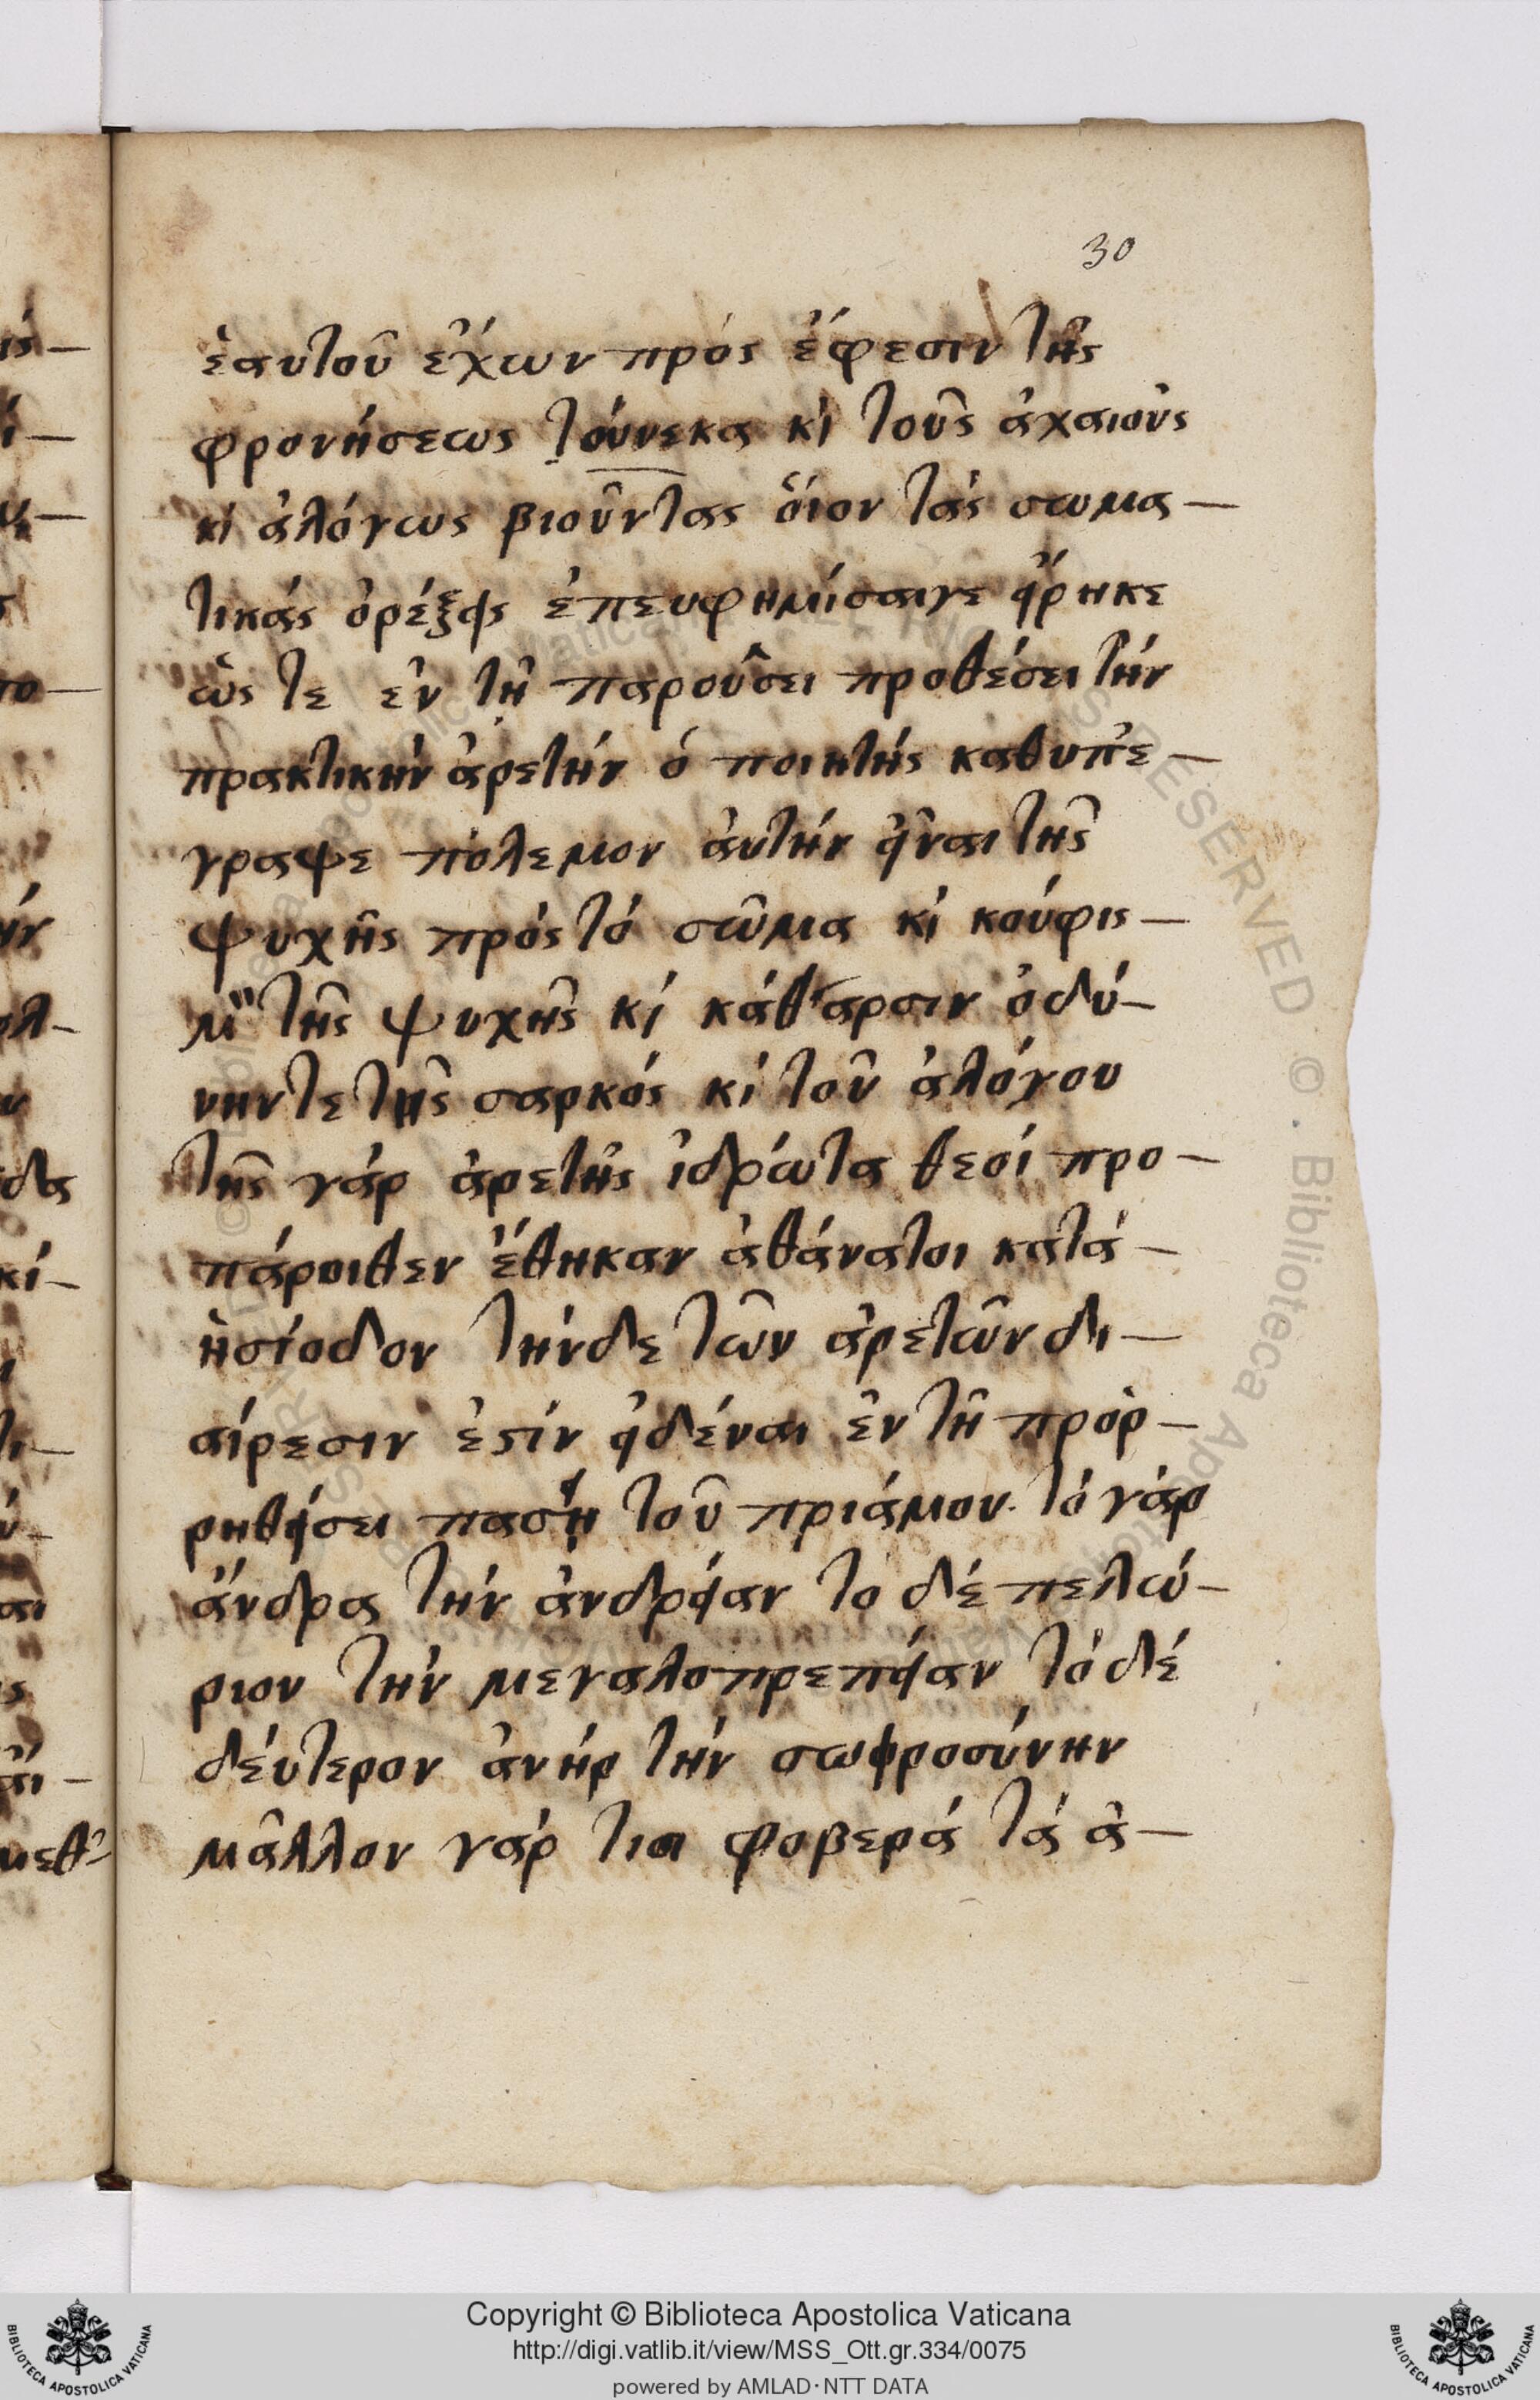 30
ἑαυτοῦ ἔχων πρός ἔφεσιν τῆς
φρονήσεως τούνεκα κὶ τοῦς ἀχαιούς
κὶ ἀλόγως βιοῦντας ὅιον τάς σωμα-
τικάς ὀρέξεις ἐπευφημίσαιγε εἴρηκε
ὡς τε ἐν τῆ παρούσει προθέσει τήν
πρακτικήν ἀρετήν ὁ ποιητής καθυπέ-
γραψε πόλεμον ἀυτήν εἶναι τῆς
ψυχῆς πρός τό σῶμα κὶ κούφις-
μα τῆς ψυχῆς κὶ κάθαρσιν ὀδύ-
νηντε τῆς σαρκός κὶ τοῦ ἀλόγου
τῆς γάρ ἀρετῆς ἱδρῶτα θεοί προ-
πάροιθεν ἔθηκαν ἀθάνατοι κατά-
ἡσίοδον τήνδε τῶν ἀρετῶν δι-
αίρεσιν ἐστίν εἰδέναι ἐν τῆ πρόρ-
ρηθείσει πασῃ τοῦ πριάμου. τό γάρ
ἄνδρα τήν ἀνδρείαν το δέ πελώ-
ριον τήν μεγαλοπρεπείαν τό δέ
δέυτερον ἀνήρ τήν σωφροσύνην
μᾶλλον γάρ τισι φοβερά τά ἀ-
Copyright © Biblioteca Apostolica Vaticana
http://digi.vatlib.it/view/MSS_Ott.gr.334/0075
powered by AMLAD·NTT DATA
BIBLIOTECA APOSTOLICA VATICANA
BIBLIOTECA APOSTOLICA VATICANA